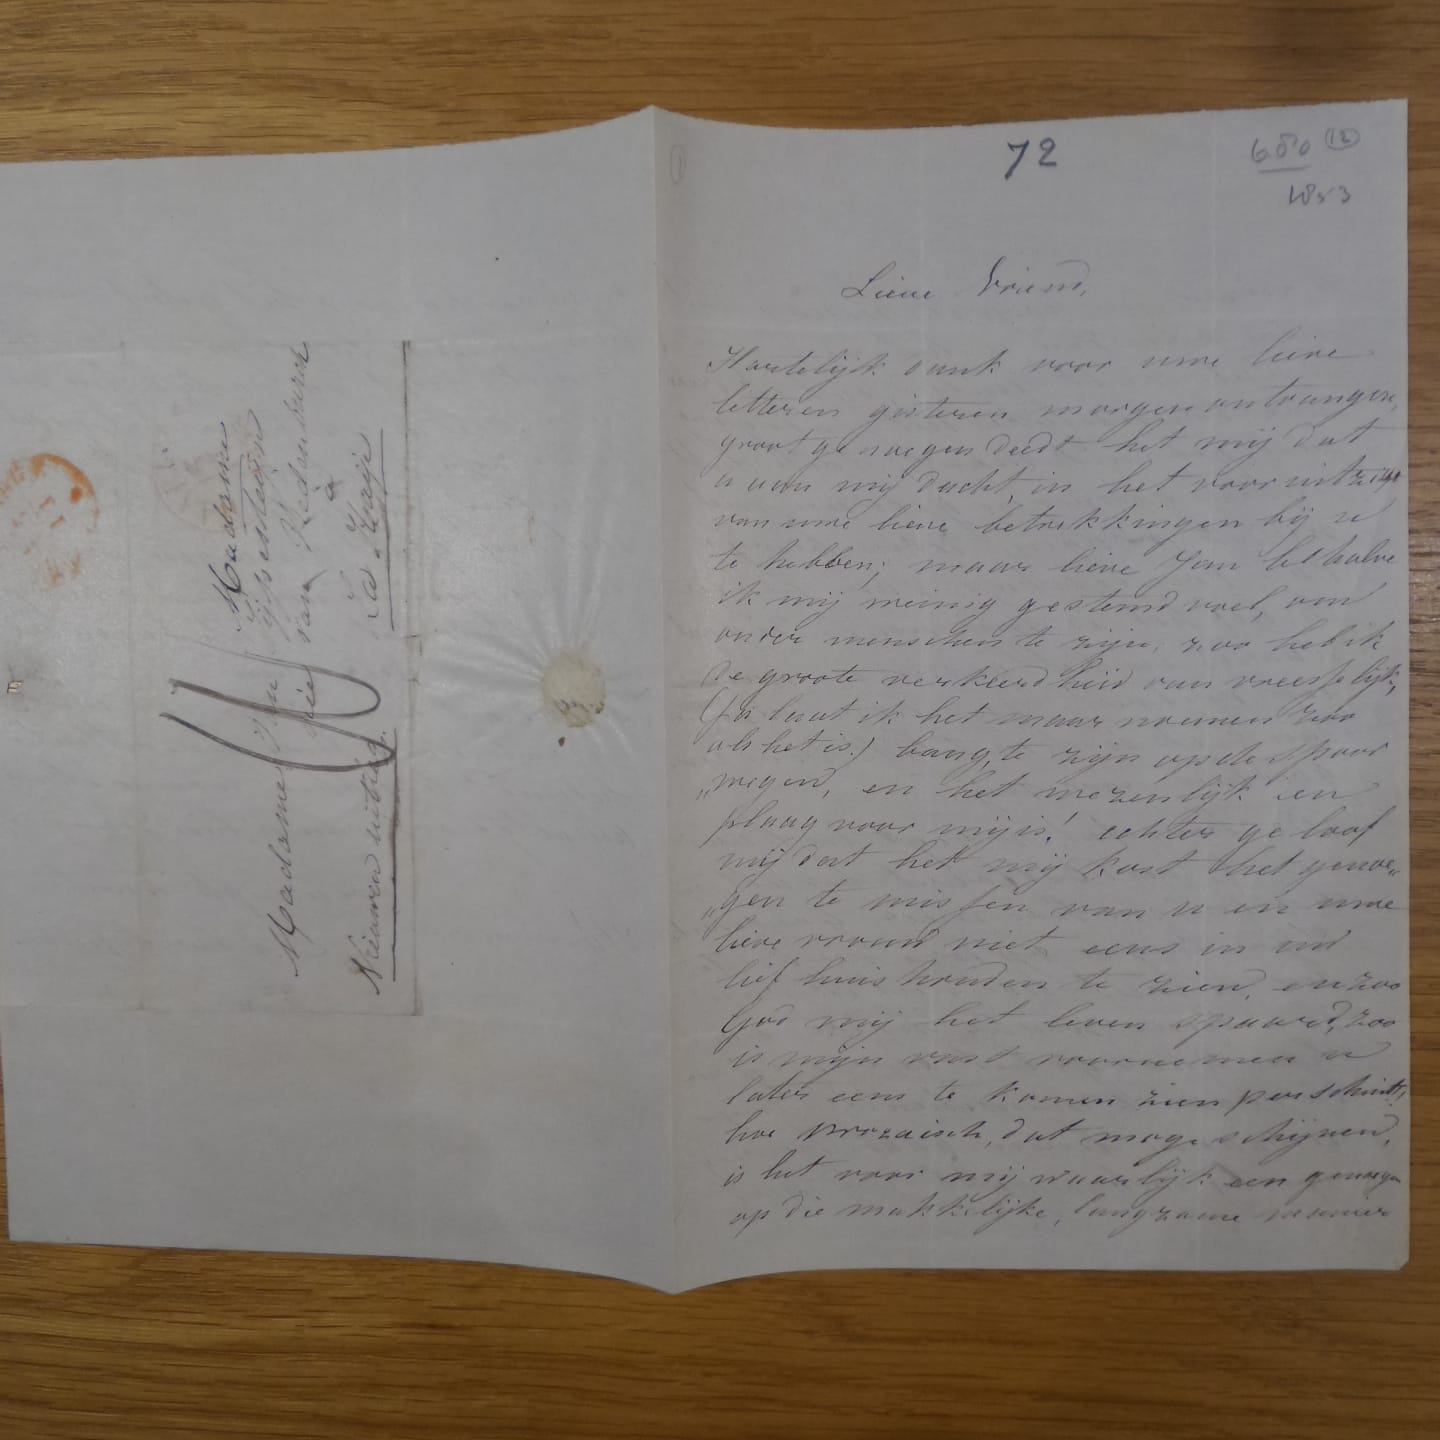 Madame
Madame
van
La Haije
72
680 (12)
1853
Lieve Vriend,
Hartelijk dank voor uwe lieve
letteren gisteren morgen ontvangen,
groot genoegen deedt het mij dat
u aan mij dacht, in het vooruitzigt
van uwe lieve betrekkingen bij u
te hebben; maar lieve Jan behalve
ik mij weinig gestemd voel, om
onder menschen te zijn, zoo heb ik
de groote verkeerdheid van vreesselijk,
(ja laat ik het maar noemen zoo
als het is.) bang, te zijn op de spoor
„wegen, en het wezenlijk een
plaag voor mij is! echter geloof
mij dat het mij kost het genoe„
„gen te missen van u en uwe
lieve vrouw niet eens in uw
lief huishouden te zien, en zoo
God mij het leven spaard, zoo
is mijn vast voornemen u
later eens te komen zien per schuit,
hoe prozaisch, dat moge schijnen,
is het voor mij waarlijk een genoegen
op die makkelijke, langzame manier